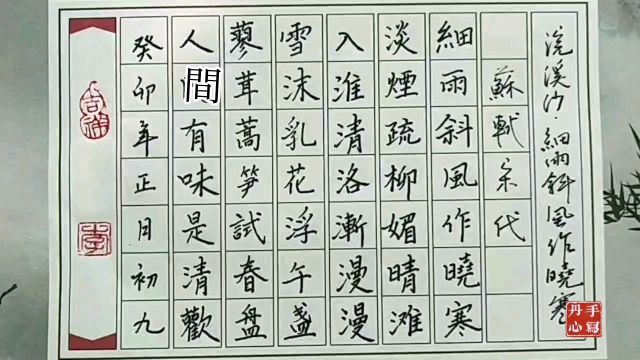 浣溪沙·細雨斜風作曉寒
蘇軾宋代
細雨斜風作曉寒
淡煙疏柳媚晴滩
入淮清洛漸漫漫
雪沫乳花浮午盏
蓼茸蒿笋試春盤
人間有味是清歡
癸卯年正月初九
吉祥
李
手寫
丹心